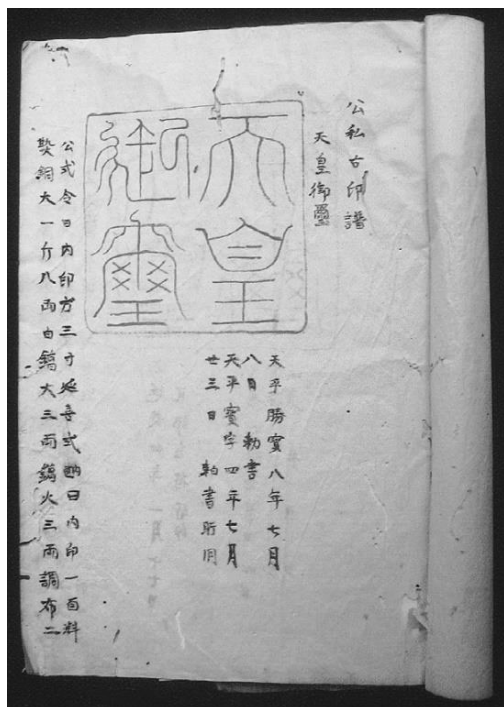 公私古印譜
天皇御璽
天皇
御璽
天平勝寳八年七月
八日 勅書
天平寳字四年七月
廿三日 勅書所用
公式令曰内印方三寸延喜式曰内印一面料
熟銅大一斤八両白鑞大三両鑞大三両調布二